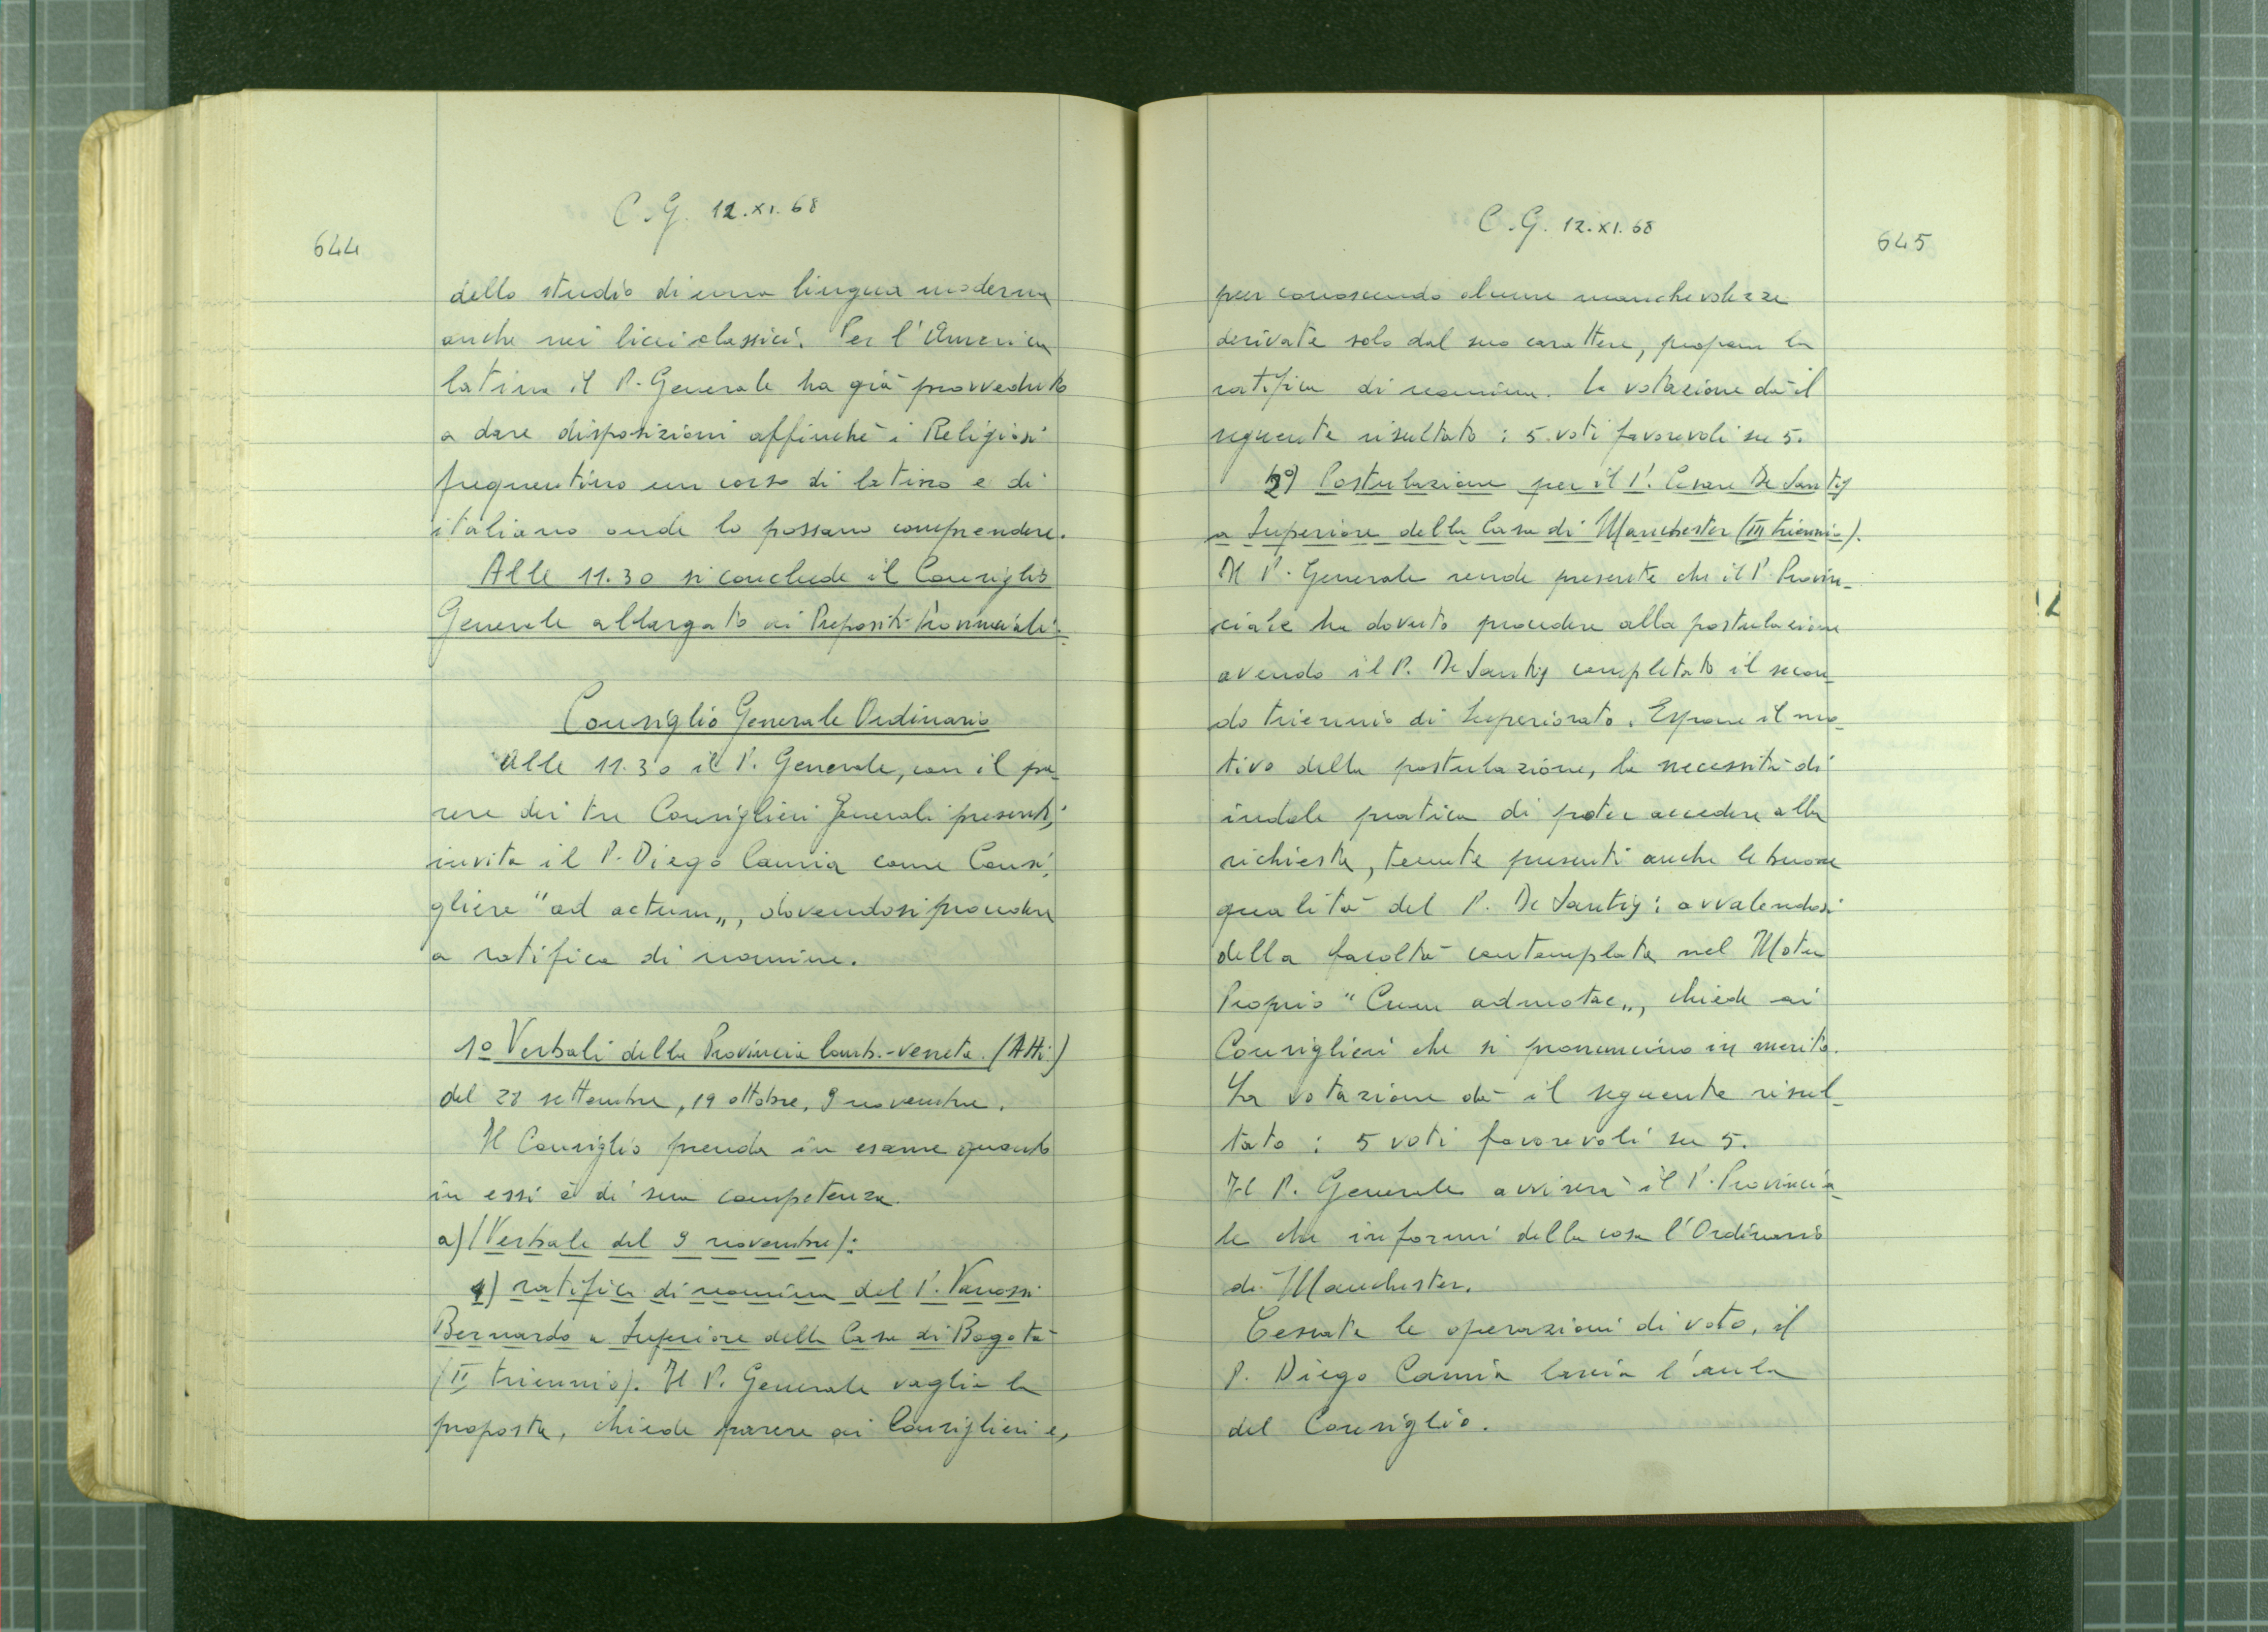 644
C.G. 12.XI.68
dello studio di una lingua moderna
anche nei licei classici. Per l'America
latina il P. Generale ha già provveduto
a dare disposizioni affinchè i Religiosi
frequentino un corso di latino e di
italiano onde lo possano comprendere.
Alle 11.30 si conclude il Consiglio
Generale allargato ai Prepositi Provinciali.
Consiglio Generale Ordinario
Alle 11.30 il P. Generale, con il pa-
rere dei tre Consiglieri Generali presenti,
invita il P. Diego Camia come Consi-
gliere "ad actum", dovendosi procedere
a ratifica di nomine.
1º Verbali della Provincia lomb.-veneta (Atti)
del 28 settembre, 19 ottobre, 9 novembre.
Il Consiglio prende in esame quanto
in essi è di sua competenza.
a) (Verbale del 9 novembre):
1) ratifica di nomina del P. Vanossi
Bernardo a Superiore della Casa di Bogotà
(II triennio). Il P. Generale vaglia la
proposta, chiede parere ai Consiglieri e,
C.G. 12.XI.68
645
pur conoscendo alcune manchevolezze
derivate solo dal suo carattere, propone la
ratifica di nomina. La votazione dà il
seguente risultato: 5 voti favorevoli su 5.
2º) Postulazione per il P. Cesare De Santis
a Superiore della Casa di Manchester (III triennio).
Il P. Generale rende presente che il P. Provin-
ciale ha dovuto procedere alla postulazione
avendo il P. De Santis completato il secon-
do triennio di Superiorato. Espone il mo-
tivo della postulazione, la necessità di
indole pratica di poter accedere alla
richiesta, tenute presenti anche le buone
qualità del P. De Santis: avvalendosi
della facoltà contemplata nel Motu
Proprio "Cum admotae", chiede ai
Consiglieri che si pronuncino in merito.
La votazione dà il seguente risul-
tato: 5 voti favorevoli su 5.
Il P. Generale avviserà il P. Provincia-
le che informi della cosa l'Ordinario
di Manchester.
Cessate le operazioni di voto, il
P. Diego Camia lascia l'aula
del Consiglio.